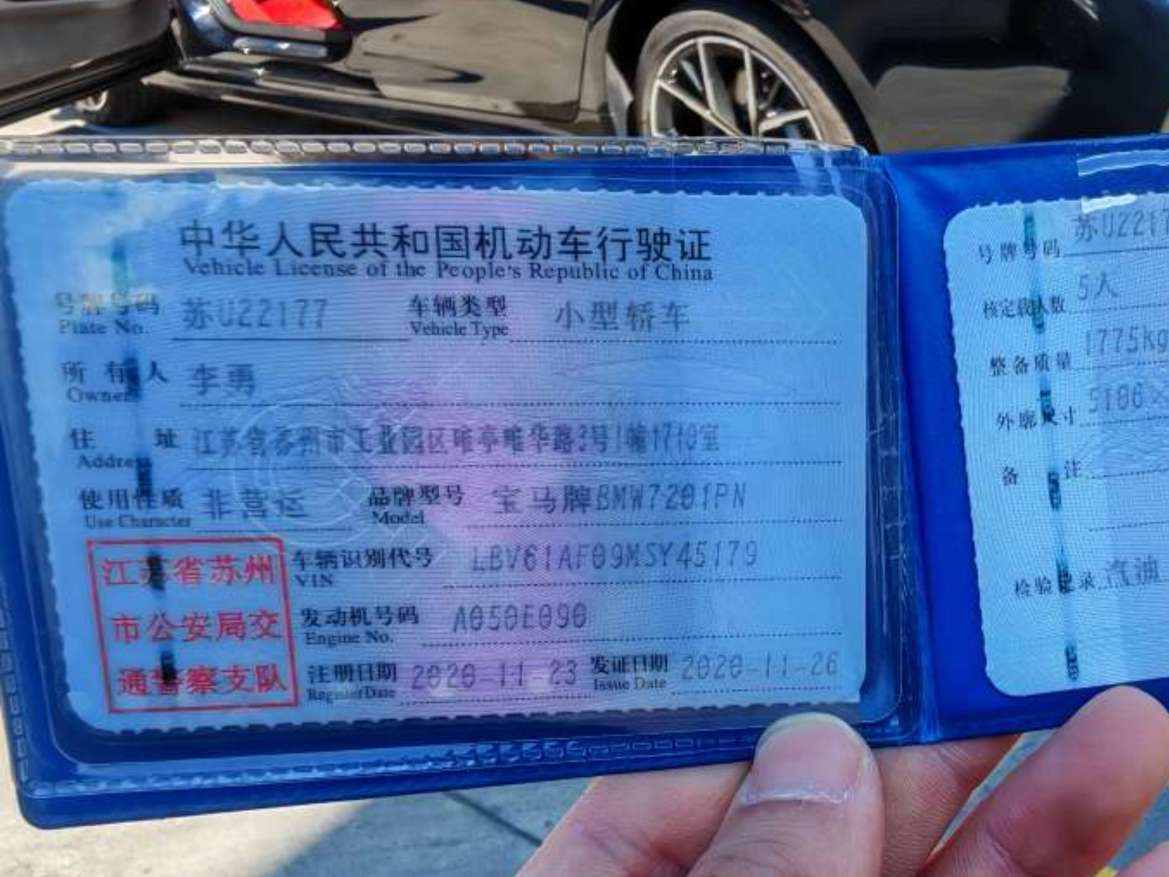 中华人民共和国机动车行驶证
Vehicle License of the People's Republic of China
号牌号码 苏U22177 车辆类型 小型轿车
Plate No. Vehicle Type
所有人 李勇
Owner
住址 江苏省苏州市工业园区唯亭唯华路3号1幢1710室
Address
使用性质 非营运 品牌型号 宝马牌BMW7201PN
Use Character Model
江苏省苏州
市公安局交
通警察支队
车辆识别代号 LBV61AF09MSY45179
VIN
发动机号码 A050E090
Engine No.
注册日期 2020-11-23 发证日期 2020-11-26
Register Date Issue Date
号牌号码 苏U2217
核定载人数 5人
整备质量 1775kg
外廓尺寸 5106×
备注
检验记录 汽油